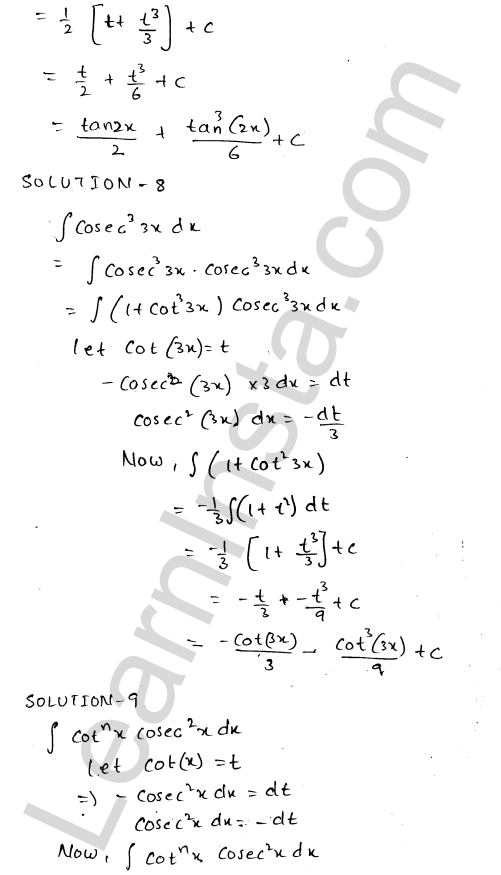 = 1/2 [t + t³/3] + c
= t/2 + t³/6 + c
= tan2x/2 + tan³(2x)/6 + c
SOLUTION - 8
∫ cosec³ 3x dx
= ∫ cosec³ 3x · cosec³ 3x dx
= ∫ (1 + cot³ 3x) cosec³ 3x dx
let cot (3x) = t
- cosec² (3x) x 3 dx = dt
cosec² (3x) dx = -dt/3
Now, ∫ (1 + cot² 3x)
= -1/3 ∫ (1 + t²) dt
= -1/3 [1 + t³/3] + c
= - t/3 + - t³/9 + c
= - cot(3x)/3 - cot³(3x)/9 + c
SOLUTION - 9
∫ cotⁿx cosec²x dx
Let cot(x) = t
=) - cosec²x dx = dt
cosec²x dx = - dt
Now, ∫ cotⁿx cosec²x dx
LearnInsta.com